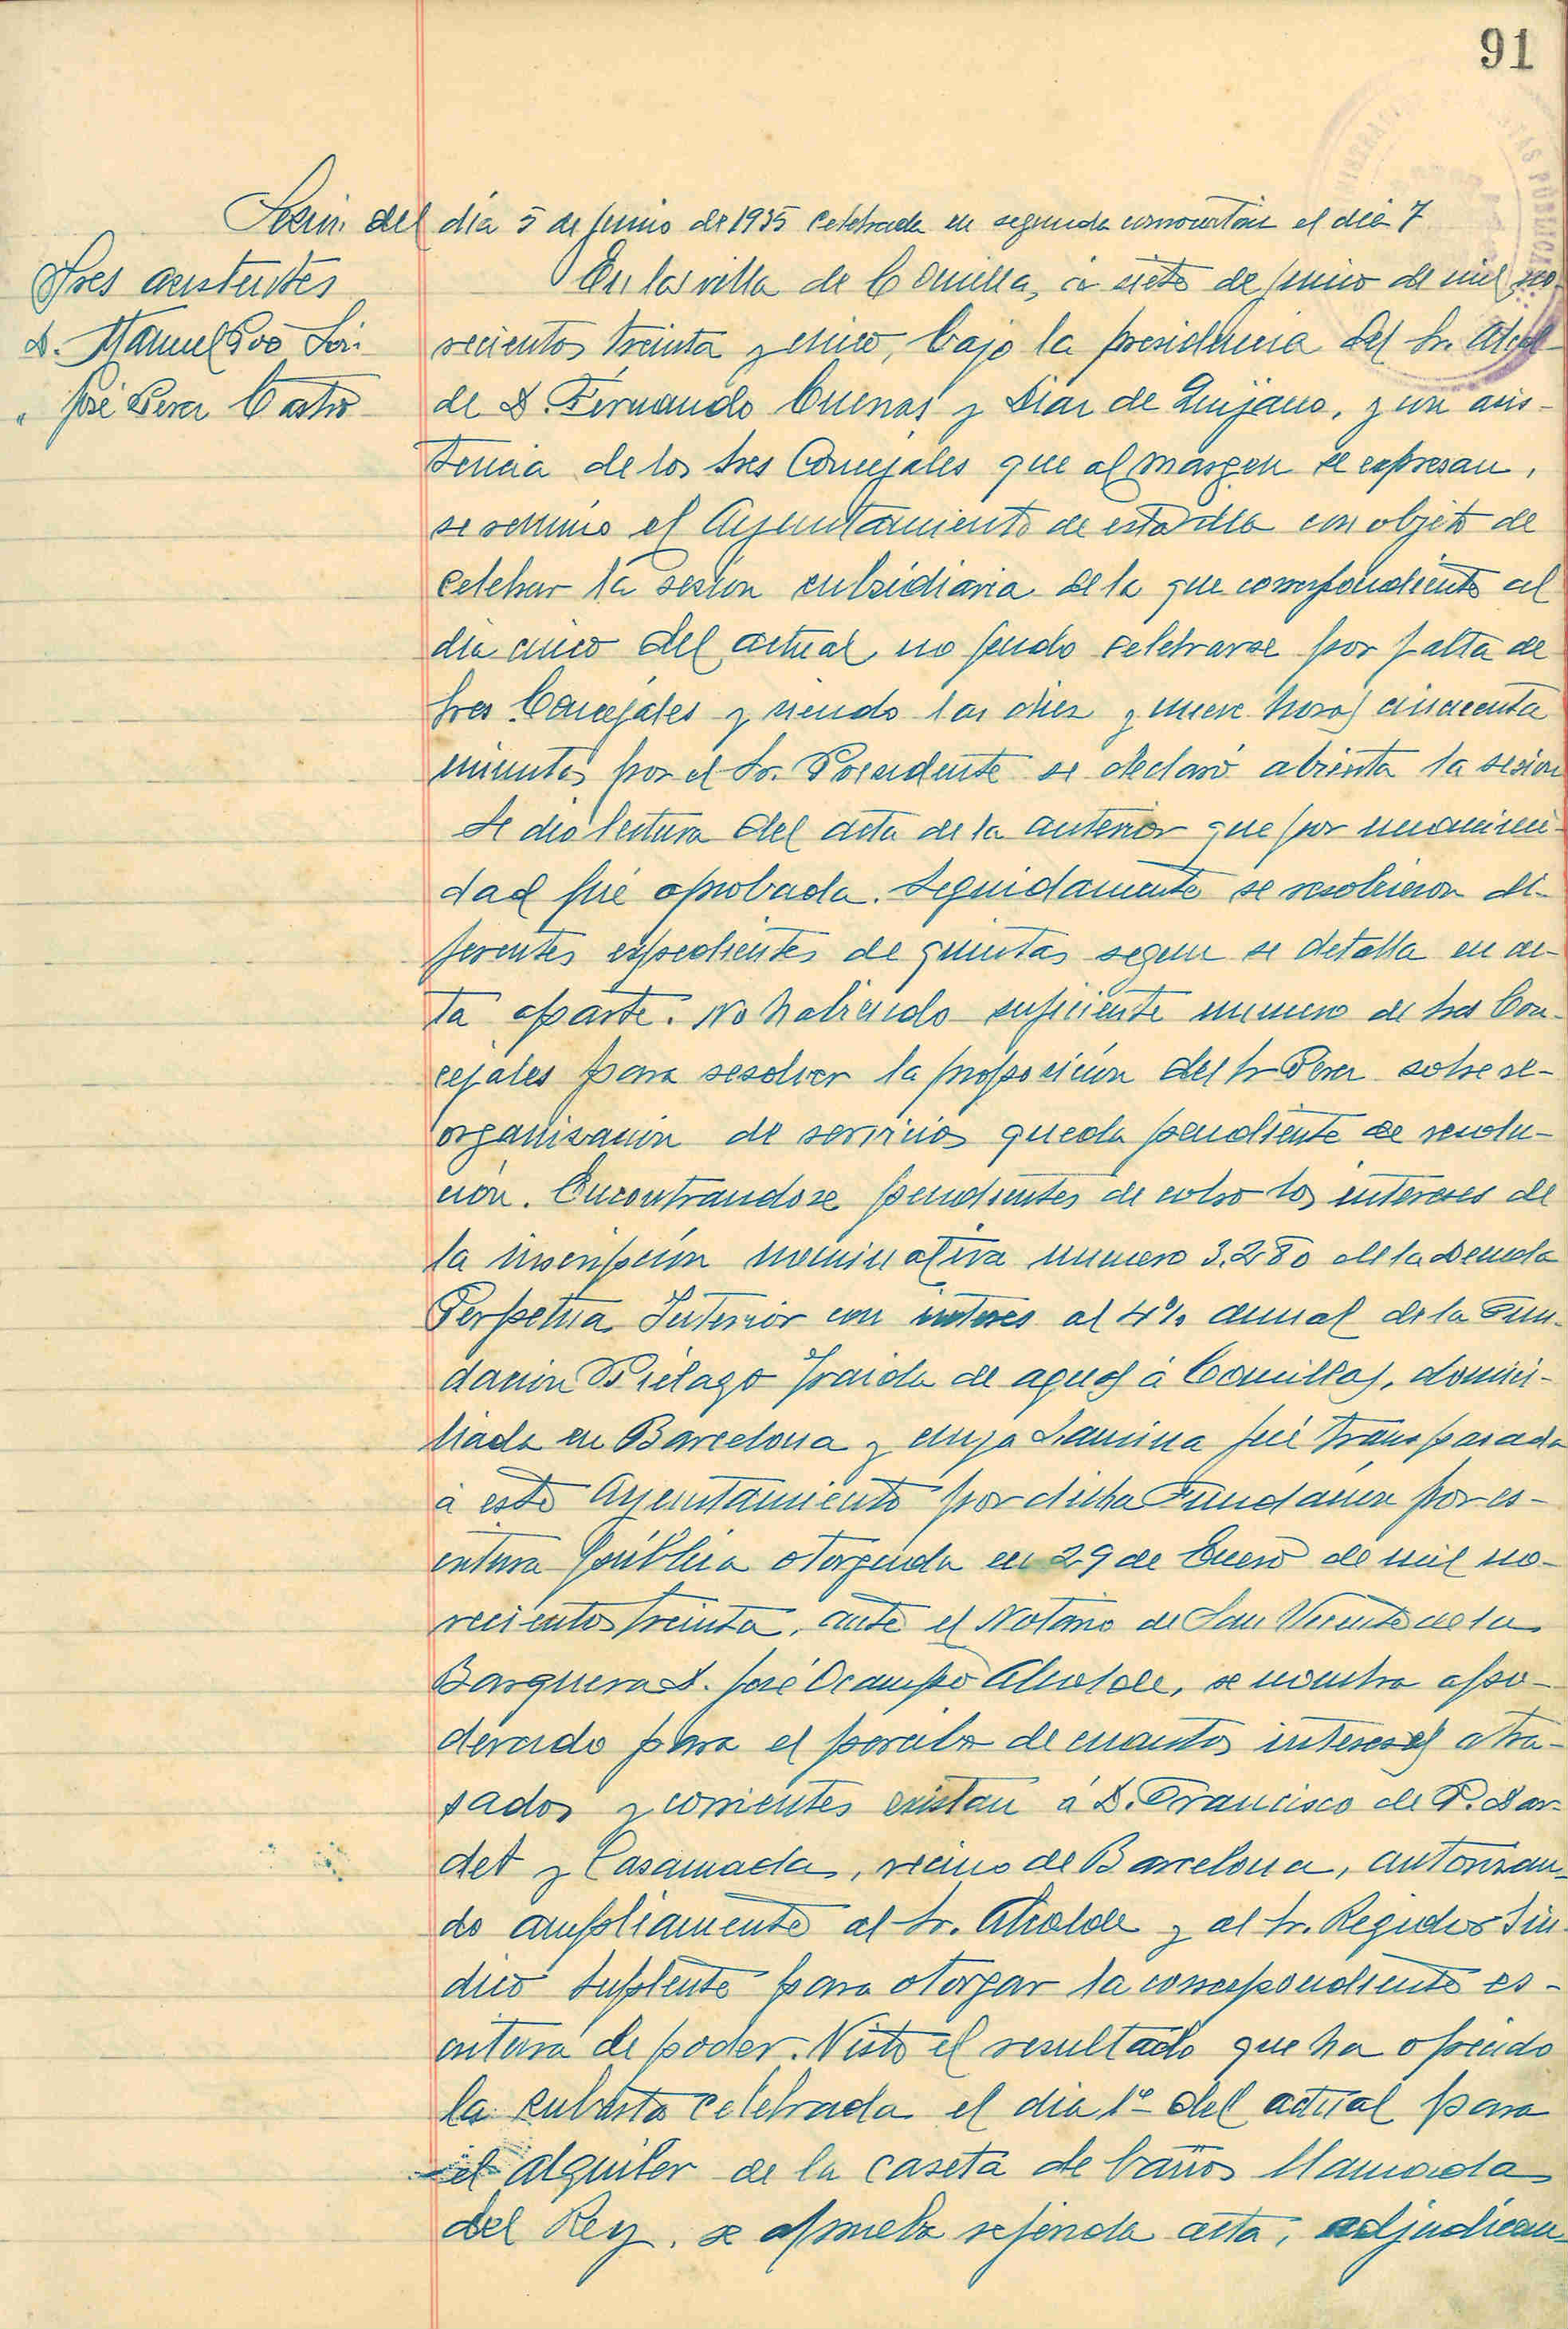 91
Sesión del día 5 de Junio de 1935 celebrada en segunda convocatoria el día 7
Sres asistentes
D. Manuel Poo
" José Perez Castro
En la villa de Comillas, á siete de junio de mil no-
vecientos treinta y cinco, bajo la presidencia del Sr. Alcal-
de D. Fernando Cuenas y Diaz de Quijano, y con asis-
tencia de los Sres Concejales que al margen se expresan,
se reunió el Ayuntamiento de esta villa con objeto de
celebrar la sesión subsidiaria de la que correspondiente al
día cinco del actual no pudo celebrarse por falta de
Sres Concejales y siendo las diez y nueve horas cincuenta
minutos por el Sr. Presidente se declaró abierta la sesion
Se dió lectura del acta de la anterior que por unanimi-
dad fué aprobada. Seguidamente se resolvieron di-
ferentes expedientes de quintas segun se detalla en ac-
ta aparte. No habiendo suficiente numero de Sres Con-
cejales para resolver la proposición del Sr Perez sobre re-
organización de servicios queda pendiente de resolu-
ción. Encontrandose pendientes de cobro los intereses de
la inscripción nominativa numero 3.280 de la Deuda
Perpetua Interior con interes al 4% anual de la Fun-
dación Piélago traida de aguas á Comillas, domici-
liada en Barcelona y cuya Lamina fué transpasada
á este Ayuntamiento por dicha Fundación por es-
critura pública otorgada en 29 de Enero de mil no-
vecientos treinta, ante el Notario de San Vicente de la
Barquera D. José Ocampo Alcalde, se nombra apo-
derado para el percibo de cuantos intereses atra-
sados y corrientes existan á D. Francisco de P. Dar-
det y Casamada, vecino de Barcelona, autorizan-
do ampliamente al Sr. Alcalde y al Sr. Regidor Sin-
dico Suplente para otorgar la correspondiente es-
critura de poder. Visto el resultado que ha ofrecido
la subasta celebrada el dia 1º del actual para
el alquiler de la caseta de baños llamada
del Rey, se aprueba referida acta, adjudican-